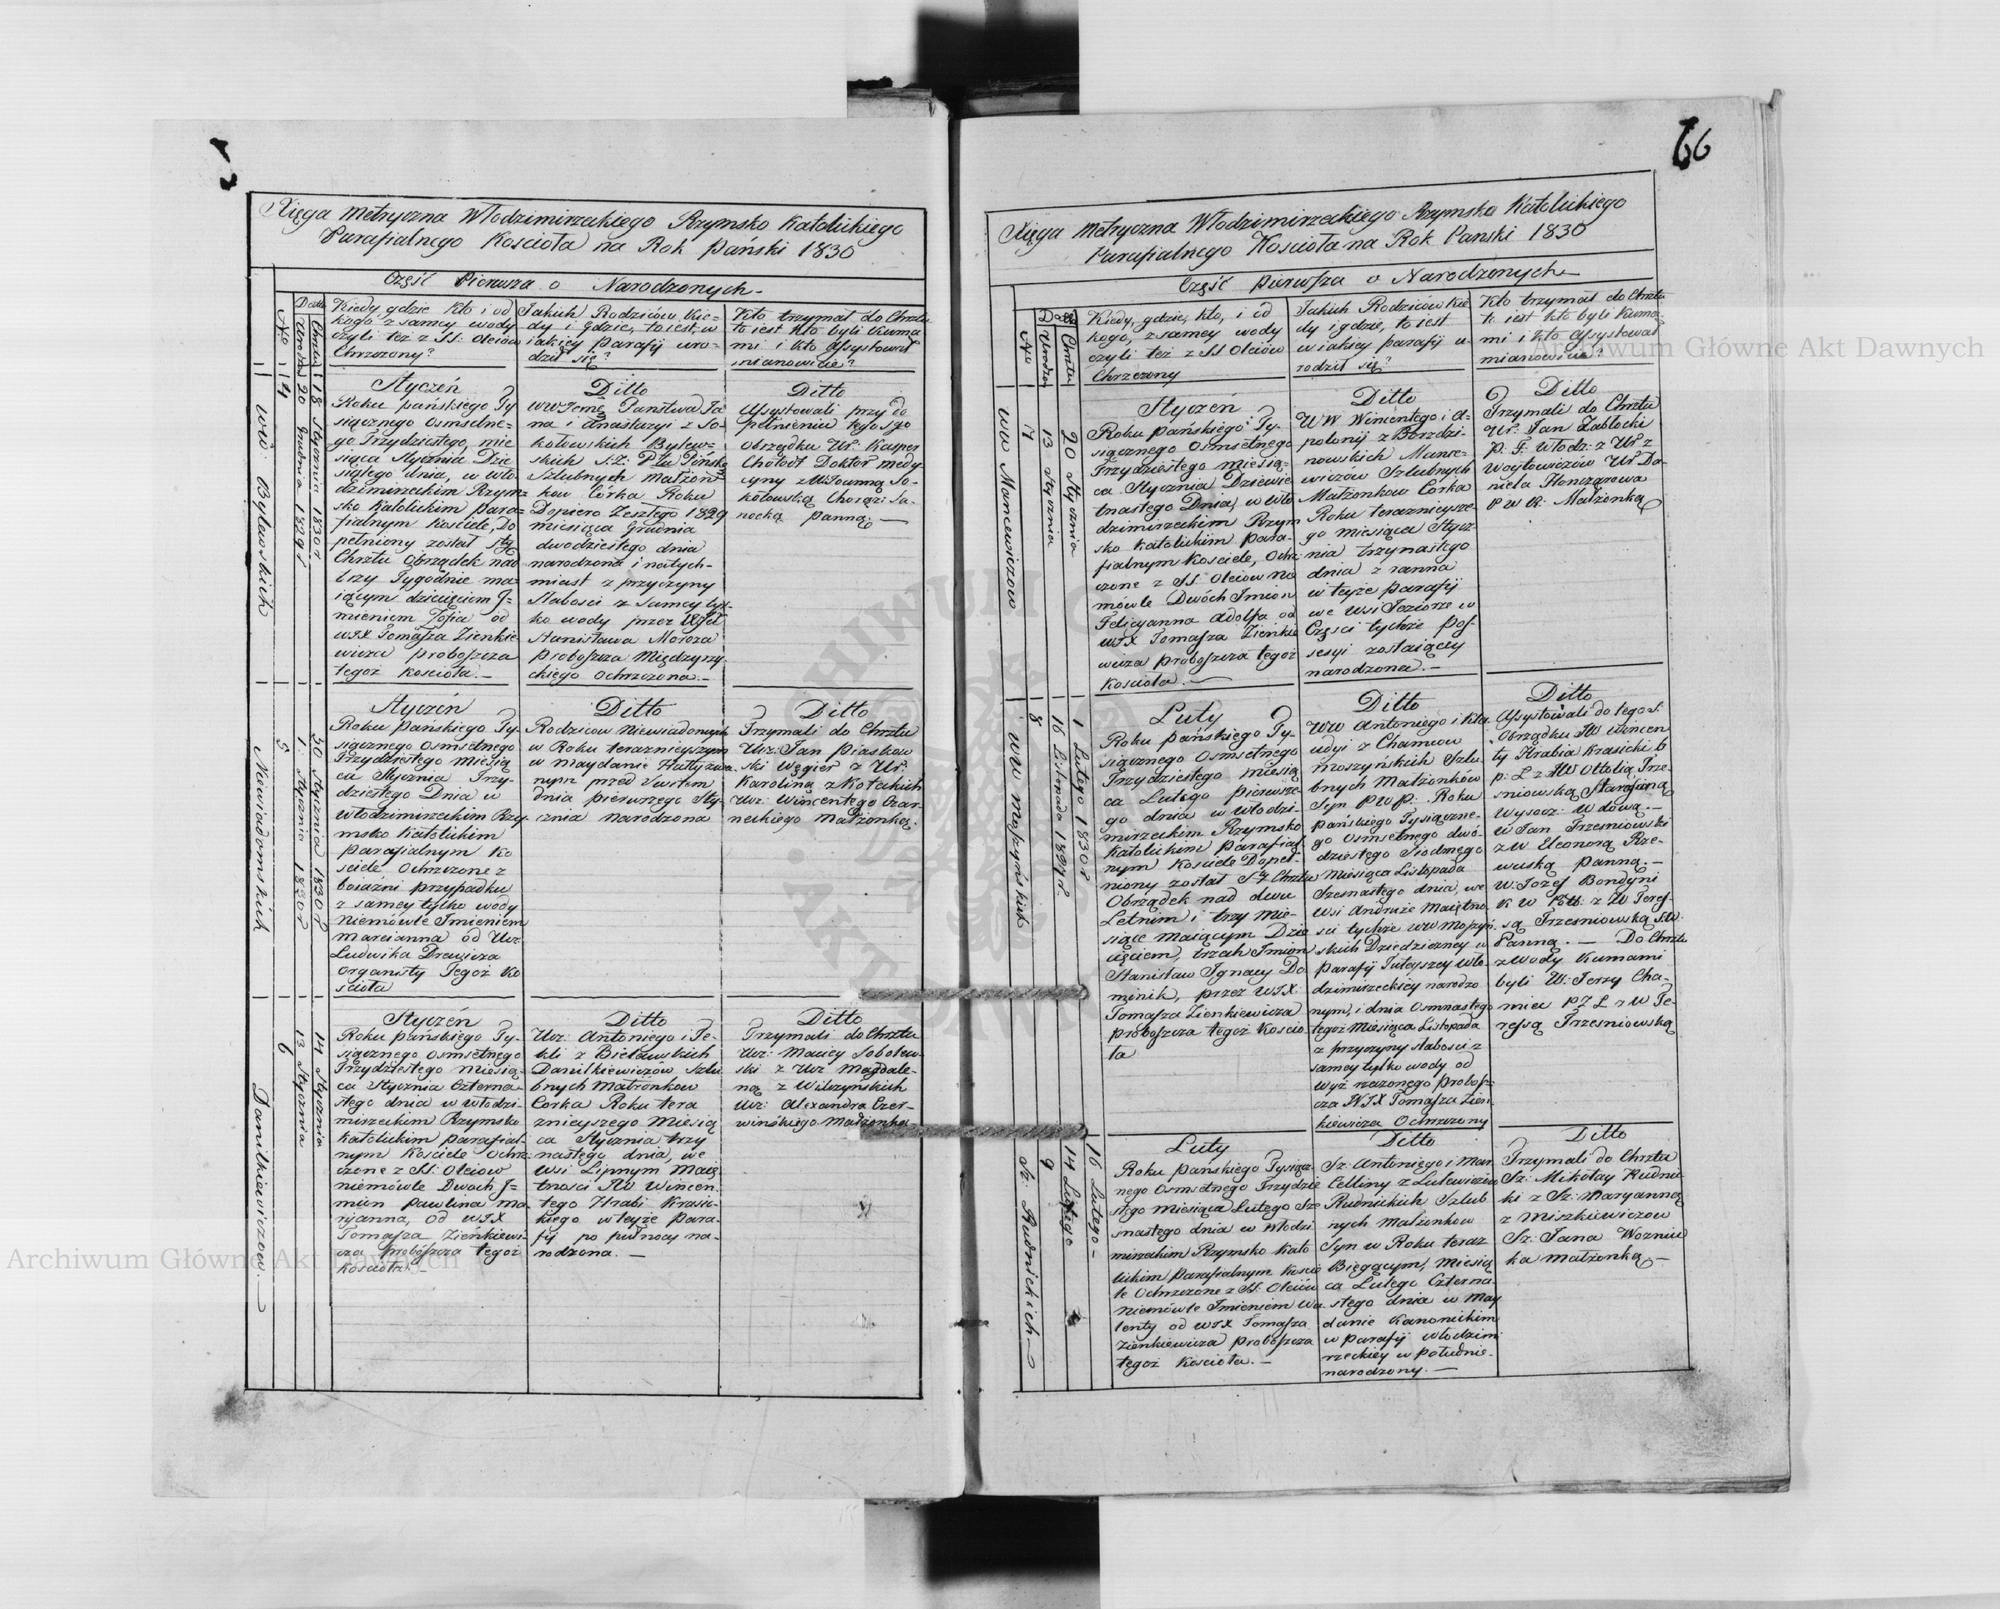 Xięga Metryczna Włodzimirzeckiego Rzymsko Katolickiego
Parafialnego Koscioła na Rok Pański 1830
Część Pierwsza o Narodzonych
No
Data
Chrztu
Urodze
Kiedy, gdzie kto i od
kogo z samey wody
czyli też z SS: Oleiów
Chrzczony?
Jakich Rodziców kie-
dy i gdzie, to iest, w
iakiey parafij uro-
dził się?
Kto trzymał do Chrztu
to iest kto byli kuma
mi i kto Assystował
mianowicie?
4
WW: Bylewskich
18 Stycznia 1830 r
20 Grudnia 1829 r
Styczeń
Roku pańskiego Ty-
siącznego Osmsetne-
go Trzydziestego, mie
siąca Stycznia Dzie
siątego dnia, w Wło
dzimirzeckim Rzym-
sko Katolickim para-
fialnym Kościele, Do
pełniony został Stg
Chrztu Obrządek nad
trzy Tygodnie ma
iącym dziecięciem J=
mieniem Zofia od
WJX Tomasza Zienkie
wicza proboszcza
tegoż koscioła.—
Ditto
WWJemę Państwa Ja
na i Anastazyi z So-
kołowskich Bylew-
skich S: Z: P Łu Pińsko
Szlubnych małżon
kow Córka Roku
Dopiero Zeszłego 1829
miesiąca Grudnia
dwodziestego dnia
narodzona i natych-
miast z przyczyny
Słabosci z samey tyl-
ko wody przez
Stanisława Moroza
Proboszcza Międzyrzy-
ckiego Ochrzczona.—
Ditto
Assystowali przy do
pełnieniu tego S go
Obrządku Ur: Kasper
Chołodt Doktor medy
cyny z WJoanną So-
kołowską Chorąż: Sa-
nocką Panną—
5
Niewiadomskich
30 Stycznia 1830 r
1. Stycznia 1830 r
Styczeń
Roku Pańskiego Ty-
siącznego Osmsetnego
Trzydziestego miesią
ca Stycznia Trzy-
dziestego Dnia w
Włodzimirzeckim Rzy-
msko Katolickim
parafialnym Ko
ściele Ochrzczone z
boiaźni przypadku
z samey tylko wody
Niemówle Imieniem
Marcianna od Urz:
Ludwika Drewicza
Organisty Tegoż Ko
ścioła
Ditto
Rodzicow Niewiadomych
w Roku terazniejszym
w Maydanie Hutyzwa-
nym przed Switem
dnia pierwszego Sty-
cznia Narodzona
Ditto
Trzymali do Chrztu
Urz: Jan Piaskow
ski Węgier z Ur:
Karoliną z Kołackich
Urz: Wincentego Czar-
neckiego Małżonką.
6
Danilkiewiczow.—
14 Stycznia
13 Stycznia
Styczeń
Roku Pańskiego Ty-
siącznego Osmsetnego
Trzydziestego Miesią-
ca Stycznia Czterna-
stego dnia w Włodzi-
mirzeckim Rzymsko
Katolickim parafial-
nym Kościele Ochrz-
czone z SS: Oleiow
niemówle Dwoch J=
mion Paulina Ma
ryanna, Od WJX
Tomasza Zienkiewi-
cza proboszcza tegoż
kościoła.—
Ditto
Urz: Antoniego i Te-
kli z Bielawskich
Danilkiewiczow Szlu
bnych Małżonkow
Corka Roku tera
znieyszego Miesią
ca Stycznia trzy
nastego dnia, we
Wsi Lipnym Maię
tnosci JW Wincen
tego Hrabi Krasic-
kiego w teyże para-
fij po pułnocy na-
rodzona.—
Ditto
Trzymali do Chrztu
Urz: Maciey Sobolew-
ski z Urz Magdale-
ną z Wilczyńskich
Urz: Alexandra Czer-
wińskiego Małżonką
66
Xięga Metryczna Włodzimirzeckiego Rzymsko Katolickiego
Parafialnego Koscioła na Rok Panski 1830
Część Pierwsza o Narodzonych
No
Data
Chrztu
Urodze
Kiedy, gdzie, kto, i od
kogo, z samey wody
czyli też z SS Oleiów
Chrzczony
Jakich Rodziców kie
dy i gdzie, to iest
w iakiey parafij u-
rodził się?
Kto trzymał do Chrztu
t: iest kto byli kumo-
mi i kto Assystował
mianowicie?
7
WW Mancewiczow
20 Stycznia
13 Stycznia
Styczeń
Roku Pańskiego Ty-
siącznego Osmsetnego
Trzydziestego miesią-
ca Stycznia Dziewie
tnastego Dnia, w Wło
dzimirzeckim Rzym
sko Katolickim para-
fialnym Kosciele, Ochrz
czone z SS. Oleiow nie
mówle Dwóch Imion
Felicyanna Adolfa od
WJX Tomasza Zienkie
wicza proboszcza tegoż
Koscioła.—
Ditto
WW Wincentego i A-
polonij z Borzdzi-
nowskich Mance-
wiczów Szlubnych
Matżonkow Córka
Roku terazniejsze-
go miesiąca Stycz-
nia trzynastego
dnia z ranna
w teyże parafij
we Wsi Jeziorze w
Części tychże pos-
sesyi zostaiącey
narodzona.—
Ditto
Trzymali do Chrztu
Ur: Jan Zabłocki
P. F. Włodz: z Ur z
Woytowiczów Ur Da-
niela Honczarowa
P W R: Małżonką
8
WW Moszyńskich
1 Lutego 1830 r
16 Listopada 1827 r.
Luty
Roku Pańskiego Ty-
siącznego Osmsetnego
Trzydziestego miesią
ca Lutego pierwsze
go dnia w Włodzi-
mirzeckim Rzymsko
Katolickim Parafial-
nym Kościele Dopeł-
niony został S go Chrztu
Obrządek nad dwu
Letnim i trzy mie-
siące maiącym Dzie
cięciem, trzech Imion
Stanisław Ignacy Do
minik, przez WJX:
Tomasza Zienkiewicza
proboszcza tegoż Koscio-
ła
Ditto
WW Antoniego i Kła
udyi z Chamcow
Moszyńskich Szlu-
bnych Małżonków
Syn P W P: Roku
Pańskiego Tysiączne-
go Osmsetnego dwó-
dziestego Siodmego
Miesiąca Listopada
Szesnastego dnia, we
Wsi Andruże Maiętno
sci tychże WW Moszyń-
skich Dziedziczney w
Parafij Tuteyszey Wło-
dzimirzeckiey narodzo
nym, i dnia Osmnastego
tegoż Miesiąca Listopada
z przyczyny słabosci z
samey tylko wody od
wyż rzczonego probosz-
cza WJX Tomasza Zien
kiewicza Ochrzczony
Ditto
Assystowali do tego S.
Obrządku JW Wincen
ty Hrabia Krasicki b
p: L z JW Ottolią Trze-
śniowską Starościną
Wysocz: Wdową.—
W Jan Trzesniowski
z W Eleonorą Rze-
wuską Panną.—
W: Jozef Bondyni
K W Pttu: z W Teres-
są Trzesniowską Sta:
Panną.— Do Chrztu
z Wody Kumami
byli W: Jerzy Cha-
miec P Z L z W Te-
ressą Trzesniowską
9
Sz: Rudnickich—
16 Lutego—
14 Lutego
Luty
Roku Pańskiego Tysiącz-
nego Osmsetnego Trzydzie
stego Miesiąca Lutego Sze
snastego dnia w Włodzi
mirzeckim Rzymsko Kato
lickim parafialnym Koscie
le Ochrzczone z SS: Oleiów
Niemówle Imieniem Wa-
lenty od WJX Tomasza
Zienkiewicza proboszcza
tegoż Koscioła.—
Ditto
Sz: Antoniego i Mar
celliny z Lulewiczow
Rudnickich Szlub
nych Małżonkow
Syn w Roku teraz
Bieżącym, Miesią
ca Lutego Czterna-
stego dnia w May
danie Kanonickim
w parafij Włodzim
rzeckiey w południe-
narodzony.—
Ditto
Trzymali do Chrztu
Sz: Mikołay Rudnic
ki z Sz: Maryanną
z Miszkiewiczow
Sz: Jana Woznic
ka Małżonką—
Archiwum Główne Akt Dawnych
Archiwum Główne Akt Dawnych